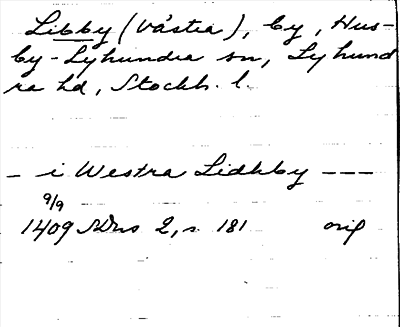 Libby (västra), by, Hus-
by-Lyhundra sn, Lyhund
ra hd, Stockh. l.
- i Westra Lidhby ---
9/9
1409 SDns 2, s 181 orig